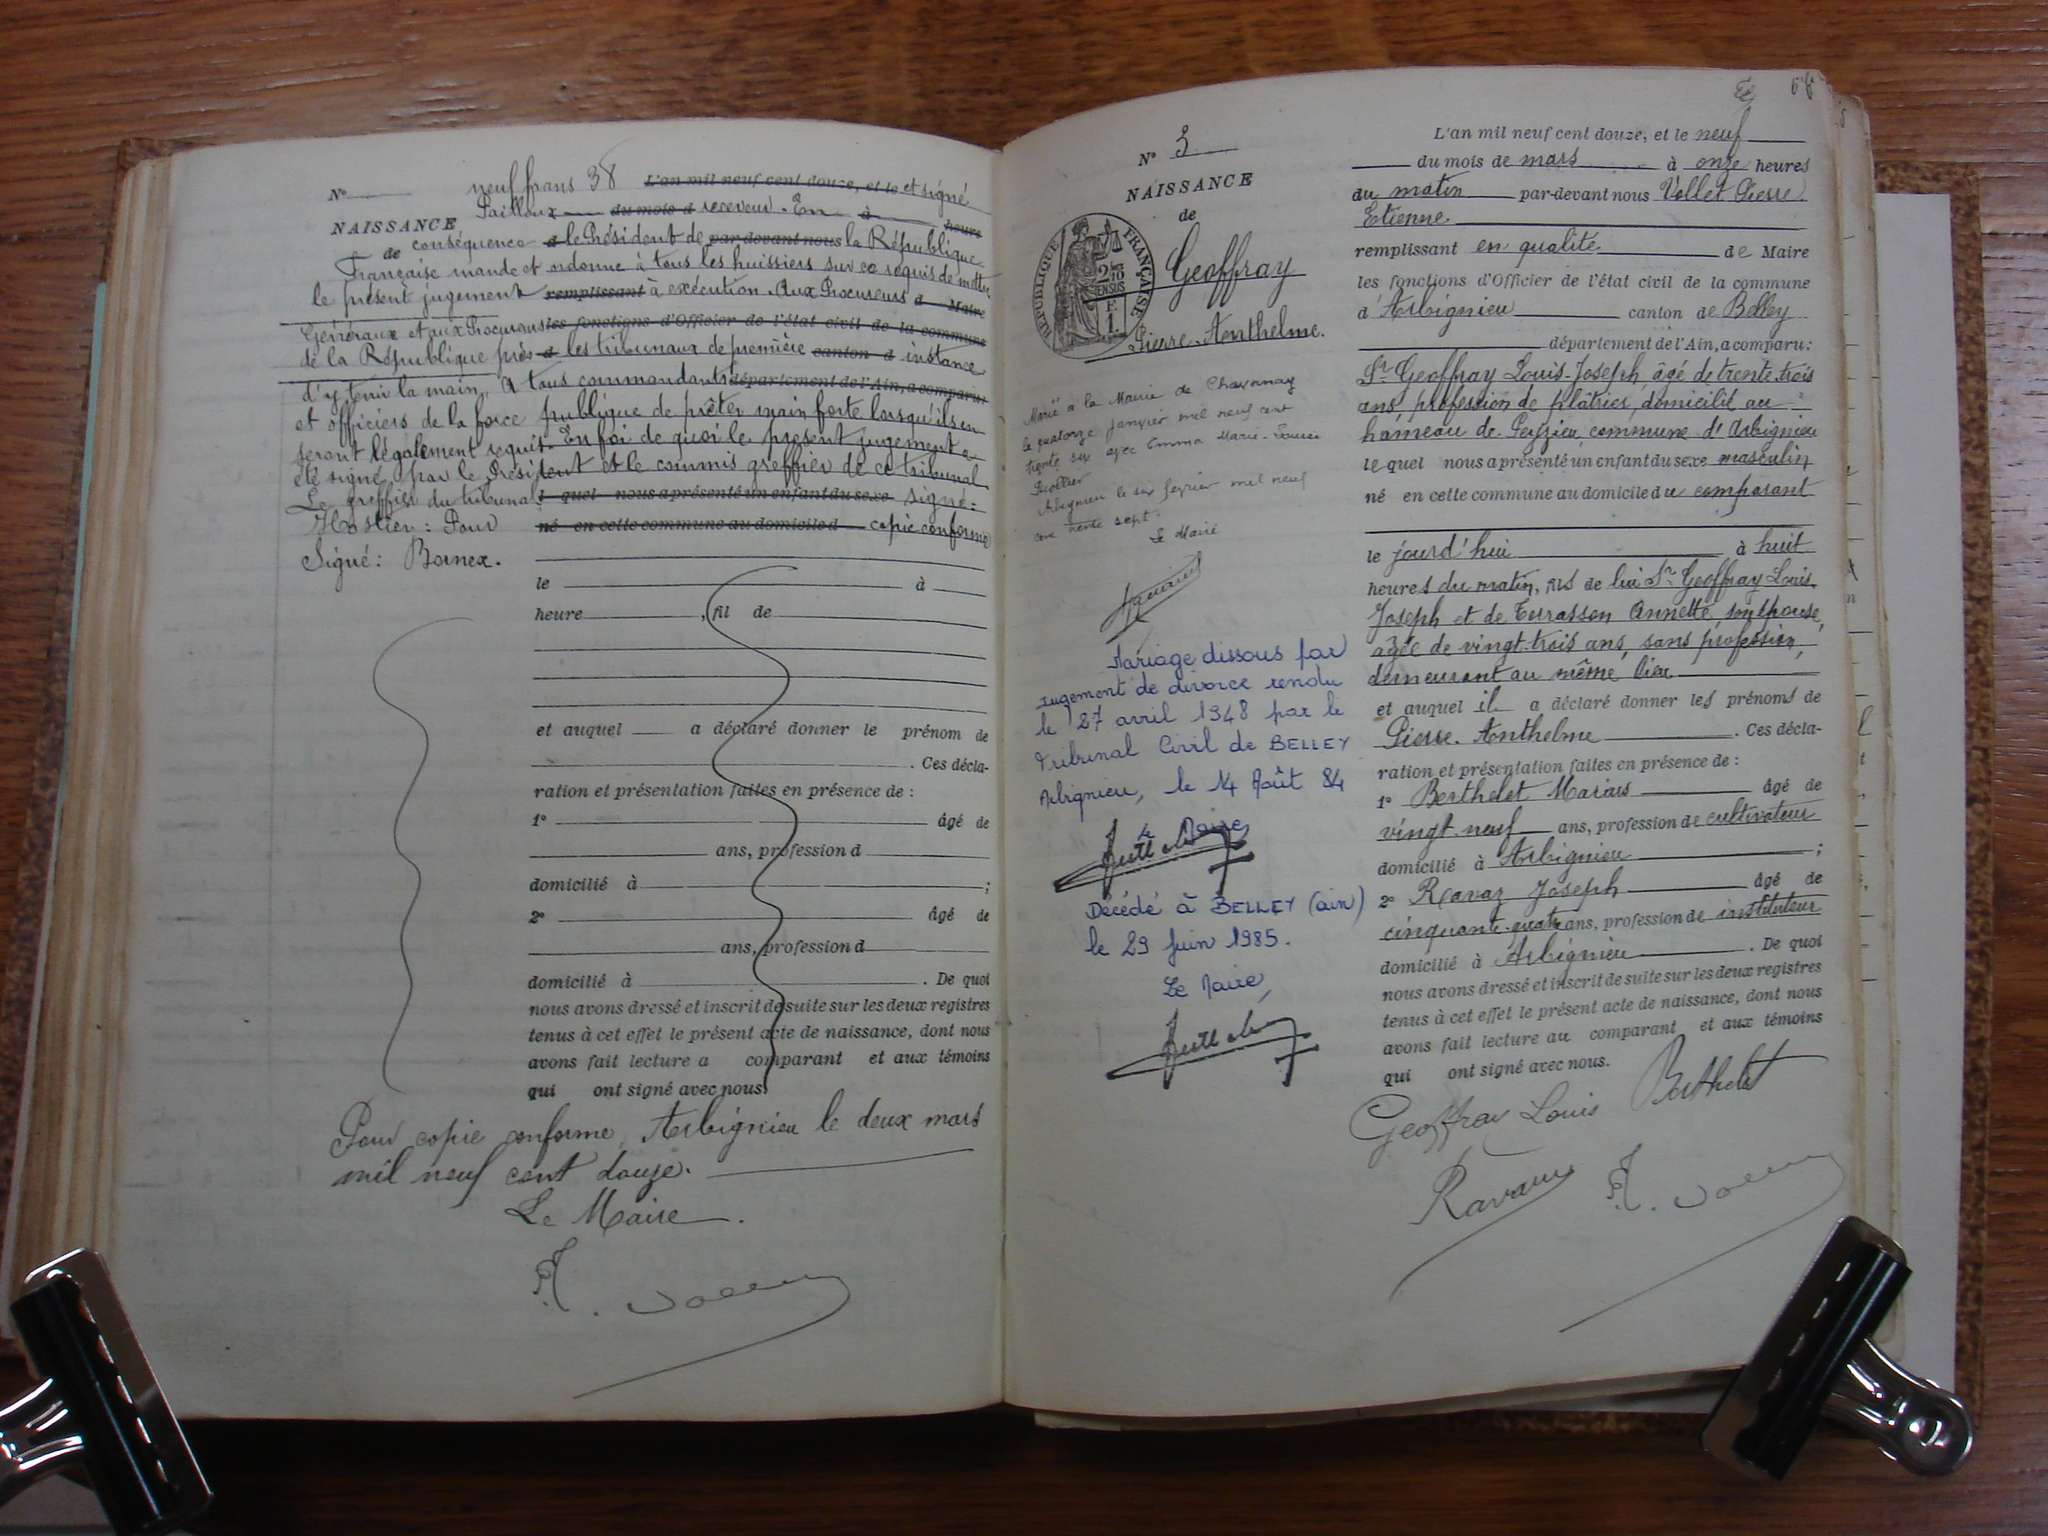 N°
NAISSANCE
de
neuf frans 38 L'an mil neuf cent douze, et le et signé
Pailloux du mois d receveur. En à heure
conséquence d le Président de par-devant nous la République
Française mande et ordonne à tous les huissiers sur ce requis de mettre
le présent jugement remplissant à exécution. Aux Procureurs d Maire
Généraux et aux Procureurs les fonctions d'Officier de l'état civil de la commune
de la République près d les tribunaux de première canton d instance
d'y tenir la main, A tous commandants département de l'Ain, a comparu
et officiers de la force publique de prêter main forte lorsqu'ils en
seront légalement requis. En foi de quoi le présent jugement a
été signé par le Président et le commis greffier de ce tribunal
Le greffier du tribunal quel nous a présenté un enfant du sexe signé:
Hostier: Pour né en cette commune au domicile d copie conforme
Signé: Bornex.
le à
heure , fil de
et auquel a déclaré donner le prénom de
. Ces décla-
ration et présentation faites en présence de :
1° âgé de
ans, profession d
domicilié à ;
2° âgé de
ans, profession d
domicilié à . De quoi
nous avons dressé et inscrit de suite sur les deux registres
tenus à cet effet le présent acte de naissance, dont nous
avons fait lecture a comparant et aux témoins
qui ont signé avec nous.
Pour copie conforme, Arbignieu le deux mars
mil neuf cent douze.
Le Maire.
N° 3
NAISSANCE
de
RÉPUBLIQUE FRANÇAISE
Geoffray
Pierre Anthelme.
Marié à la Mairie de Chavornay
le quatorze janvier mil neuf cent
trente six avec Emma Marie-
Arbignieu le six février mil neuf
cent trente sept.
Le Maire
Mariage dissous par
jugement de divorce rendu
le 27 avril 1948 par le
Tribunal Civil de BELLEY
Arbignieu, le 14 Août 84
Le Maire,
Décédé à BELLEY (ain)
le 29 juin 1985.
Le Maire,
L'an mil neuf cent douze, et le neuf
du mois de mars à onze heures
du matin par-devant nous Vollet Pierre
Etienne
remplissant en qualité de Maire
les fonctions d'Officier de l'état civil de la commune
d'Arbignieu canton de Belley
département de l'Ain, a comparu :
Sr Geoffray Louis-Joseph âgé de trente trois
ans, profession de plâtrier, domicilié au
hameau de Peyzieu, commune d'Arbignieu
le quel nous a présenté un enfant du sexe masculin
né en cette commune au domicile du comparant
le jourd'hui à huit
heures du matin, fils de lui Sr Geoffray Louis
Joseph et de Terrasson Annette, son épouse,
agée de vingt-trois ans, sans profession,
demeurant au même lieu
et auquel il a déclaré donner les prénoms de
Pierre. Anthelme . Ces décla-
ration et présentation faites en présence de :
1° Berthelet Marius âgé de
vingt neuf ans, profession de cultivateur
domicilié à Arbignieu ;
2° Ravaz Joseph âgé de
cinquante-quatre ans, profession de instituteur
domicilié à Arbignieu . De quoi
nous avons dressé et inscrit de suite sur les deux registres
tenus à cet effet le présent acte de naissance, dont nous
avons fait lecture au comparant et aux témoins
qui ont signé avec nous.
Geoffray Louis Berthelet
Ravaz